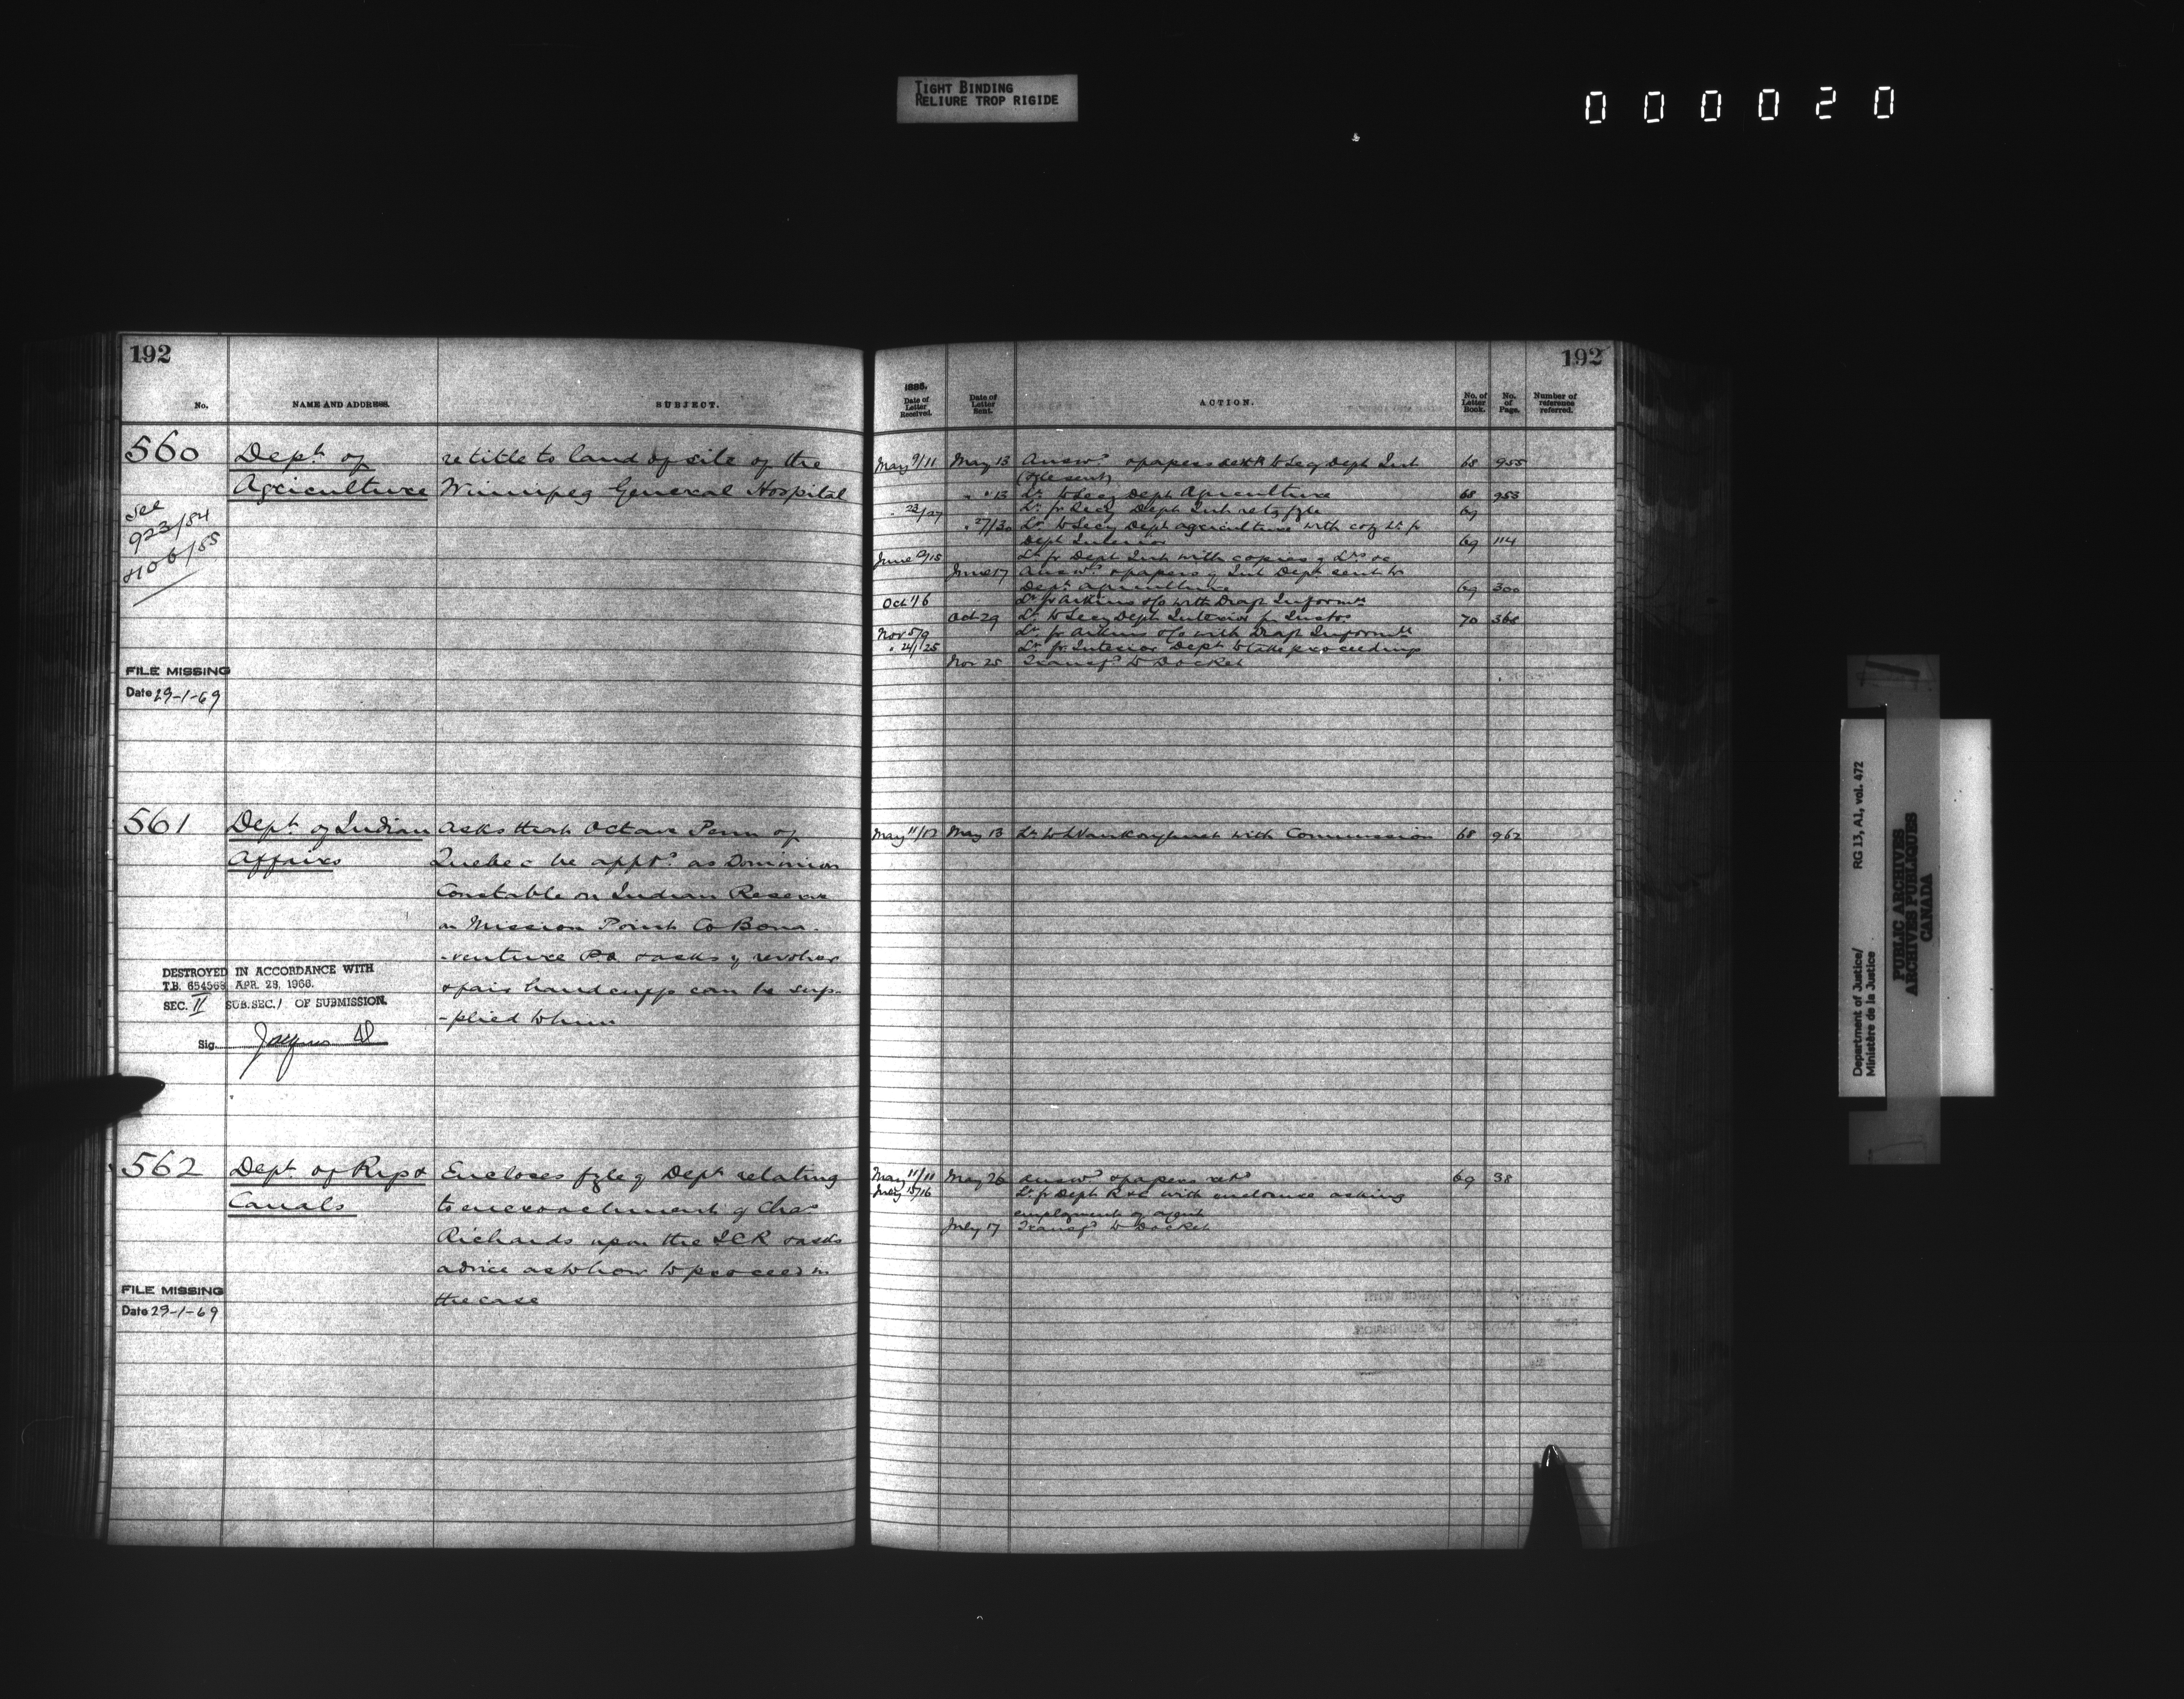 TIGHT BINDING
RELIURE TROP RIGIDE
000020
192
No.
NAME AND ADDRESS.
SUBJECT.
560
Dept. of
Agriculture
re title to land of site of the
Winnipeg General Hospital
see
923/84
406/85
FILE MISSING
Date 29-1-69
561
Dept. of Indian
Affairs
Asks that Octave Penn of
Quebec be apptd. as Dominion
Constable on Indian Reserve
on Mission Point Co Bona-
-venture P.Q. & asks if revolver
& pair handcuffs can be sup-
-plied to him
DESTROYED IN ACCORDANCE WITH
T.B. 654568 APR. 28, 1966.
SEC. II SUB.SEC. 1 OF SUBMISSION.
Sig.
562
Dept. of Rys &
Canals
Encloses fyle of Dept. relating
to encroachment of Chas
Richards upon the ICR & asks
advice as to how to proceed in
the case
FILE MISSING
Date 29-1-69
192
1885.
Date of Letter Received.
Date of Letter Sent.
ACTION.
No. of Letter Book.
No. of Page.
Number of reference referred.
May 9/11 May 13 Answd. & papers sent to Secy Dept Int 68 955
(fyle sent)
" " 13 Lr. to Secy Dept Agriculture 68 953
" 23/27 Lr. fr Secy Dept Int retg fyle 69
" 27/30 Lr. to Secy Dept Agriculture with copy Lr. fr
Dept Interior 69 114
June 9/15 Lr. fr Dept Int with copies of Lrs re
June 17 Answd. & papers of Int Dept. sent to
Dept. Agriculture 69 300
Oct 1/6 Lr. fr Aikins &c with Draft Informn.
Oct 29 Lr. to Secy Dept Interior for Instns 70 366
Nov 5/9 Lr. fr Aikins &c with Draft Informn.
" 24/25 Lr. fr Interior Dept. to take proceedings
Nov 25 Transfd. to Docket
May 11/12 May 13 Lr. to with Commission 68 962
May 11/11 May 26 Answd & papers retd 69 38
July 15/16 Lr. fr Dept R & C with enclosure asking
employment of agent
July 17 Transfd to Docket
Department of Justice/
Ministère de la Justice
RG 13, A1, vol. 472
PUBLIC ARCHIVES
ARCHIVES PUBLIQUES
CANADA